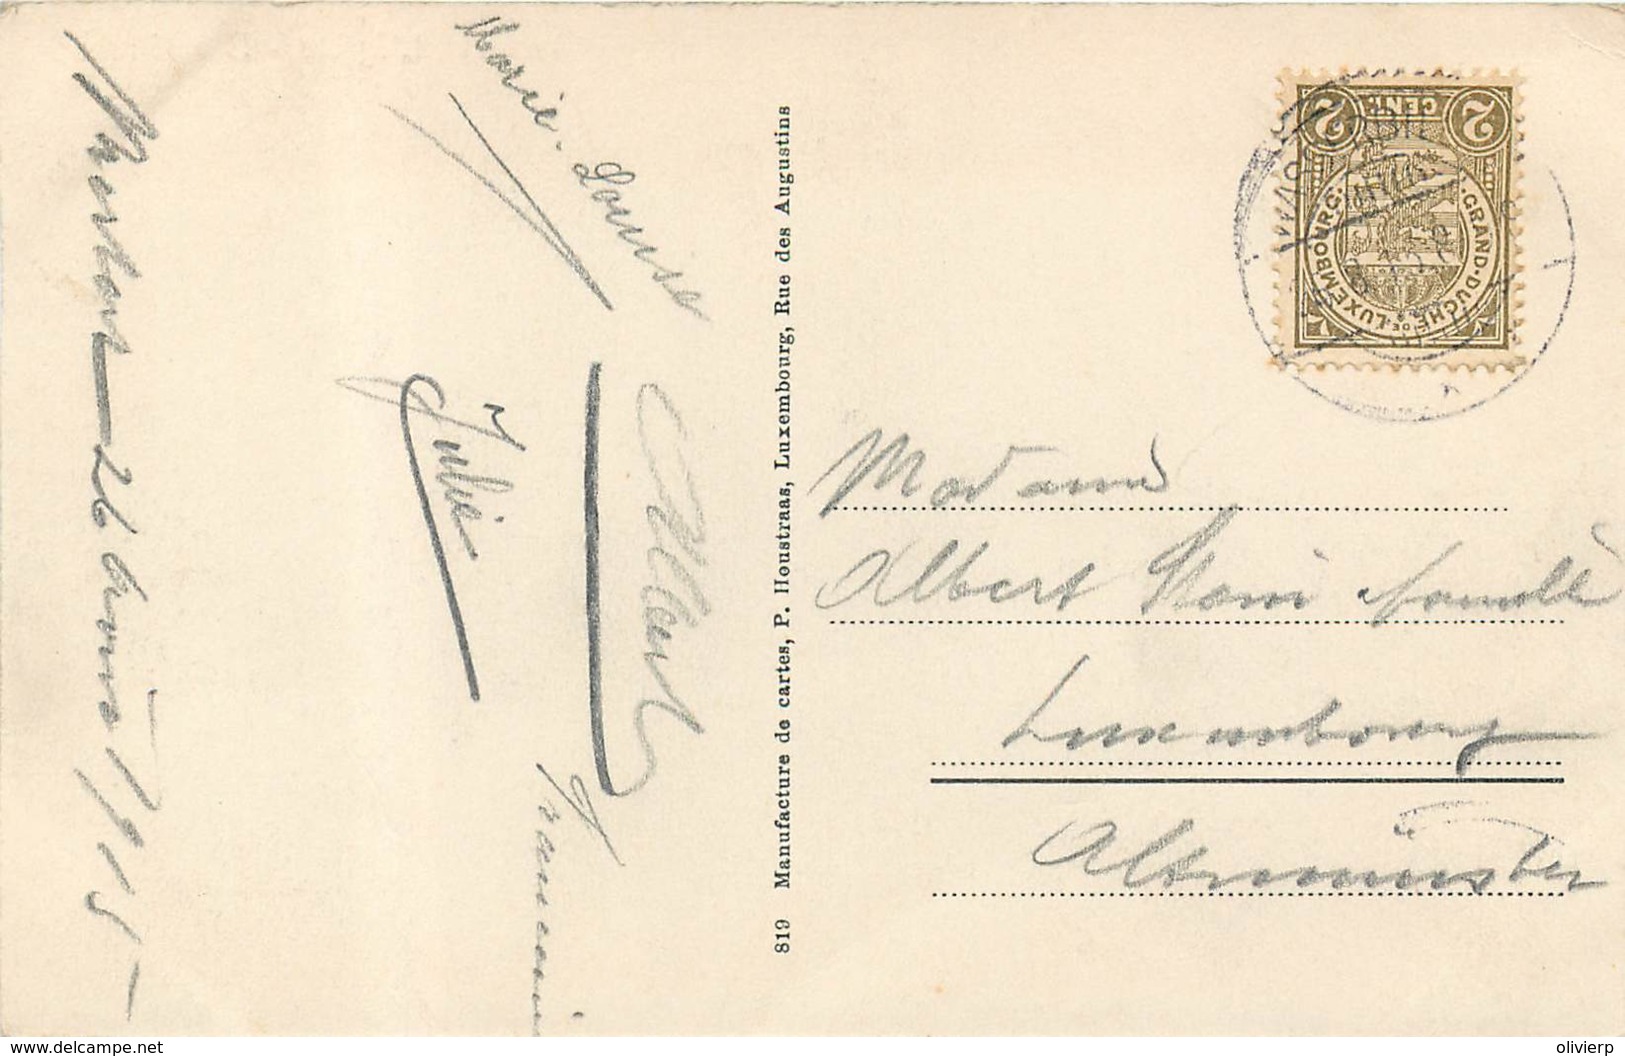 Marie-Louise
Julie
Albert
26 1915
819 Manufacture de cartes, P. Houstraas, Luxembourg, Rue des Augustins
2 CENT. 2
GRAND-DUCHÉ DE LUXEMBOURG
Madame
Albert
Luxembourg
Altmünster
www.delcampe.net
olivierp